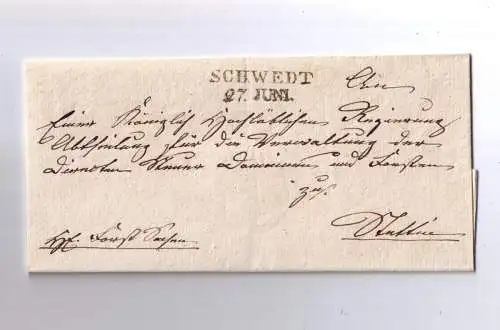 SCHWEDT
27. JUNI.
An
Eine Königlich Hochlöbliche Regierung
Abtheilung für die Verwaltung der
Directen Steuer Domainen und Forsten
zu
Stettin
Forst Sachen